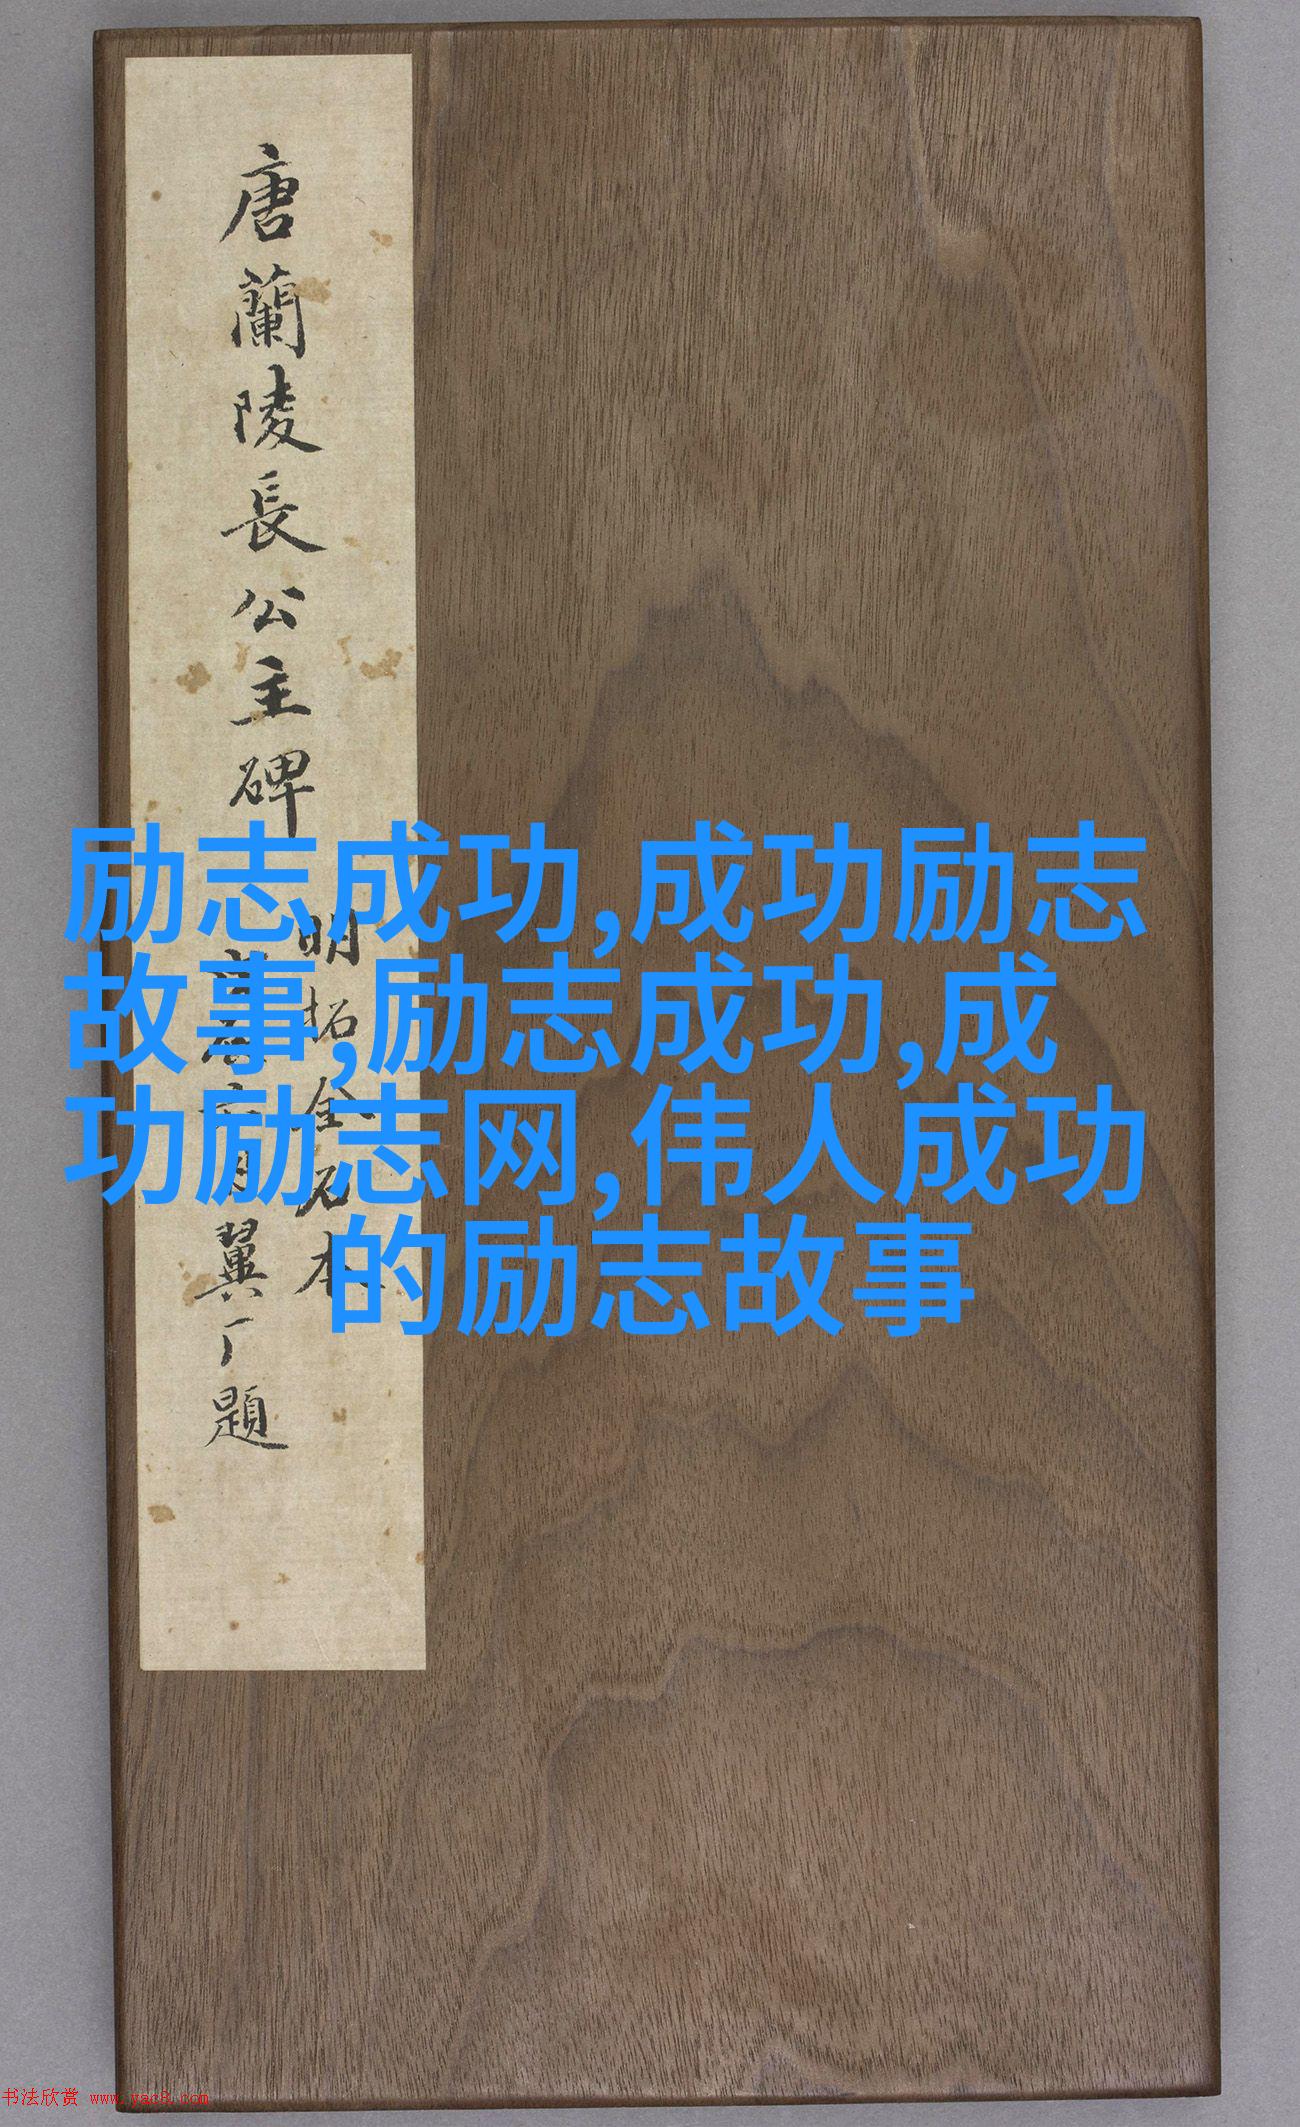 唐蘭陵長公主碑
明拓全石本
翼厂題
励志成功,成功励志
故事,励志成功,成
功励志网,伟人成功
的励志故事
书法欣赏 www.yac8.com